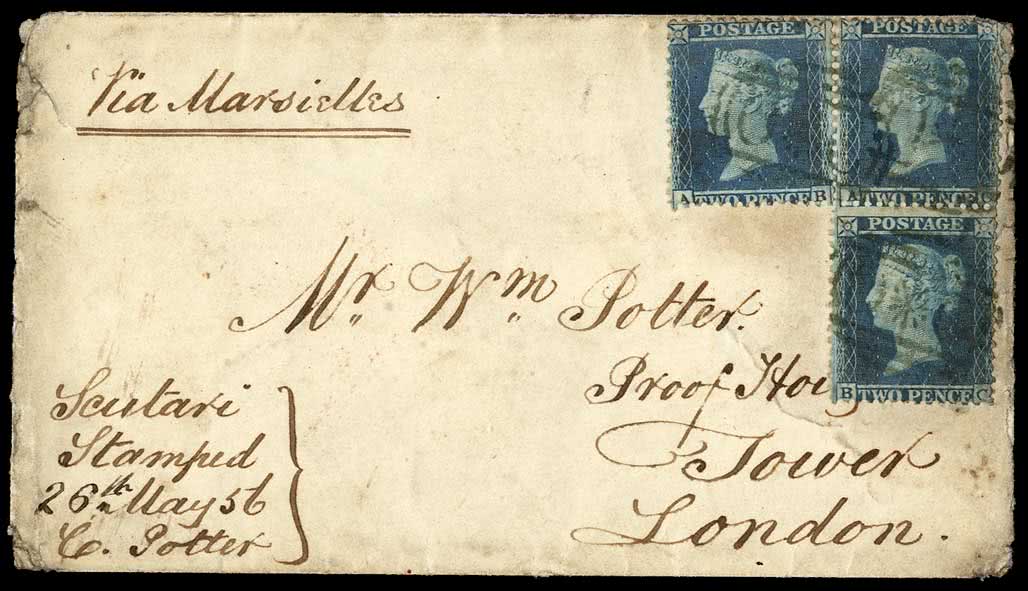 Via Marsielles
POSTAGE
A TWO PENCE B
POSTAGE
A TWO PENCE C
POSTAGE
B TWO PENCE C
Mr. Wm. Potter.
Proof
Tower
London.
Scutari
Stamped
26th May 56
C. Potter